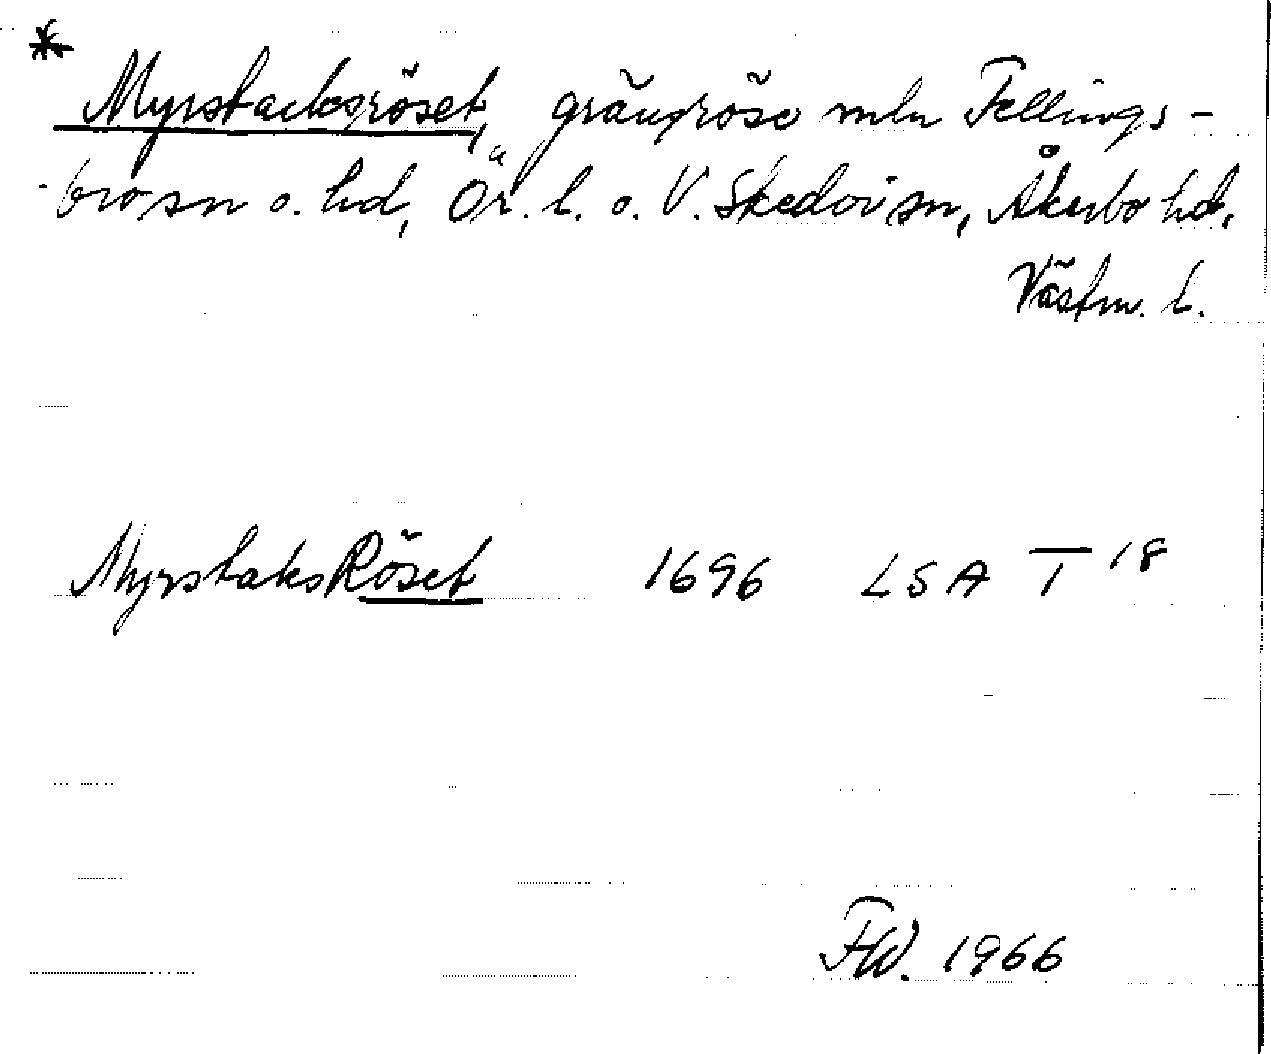 *
Myrstacksröset, gränsröse mln Fellings-
bro sn o. hd, Ör. l. o. V. Skedvi sn, Åkerbo hd,
Västm. l.
MyrstaksRöset 1696 LSA T 18
FW. 1966